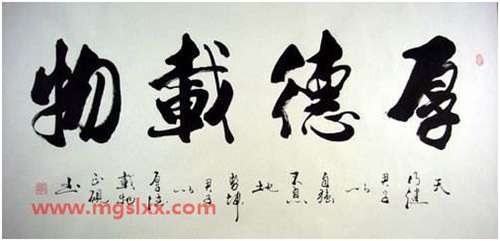 厚德載物
天
行健
君子
以
自强
不息
地
勢坤
君子
以
厚德
載物
书
www.mgslxx.com